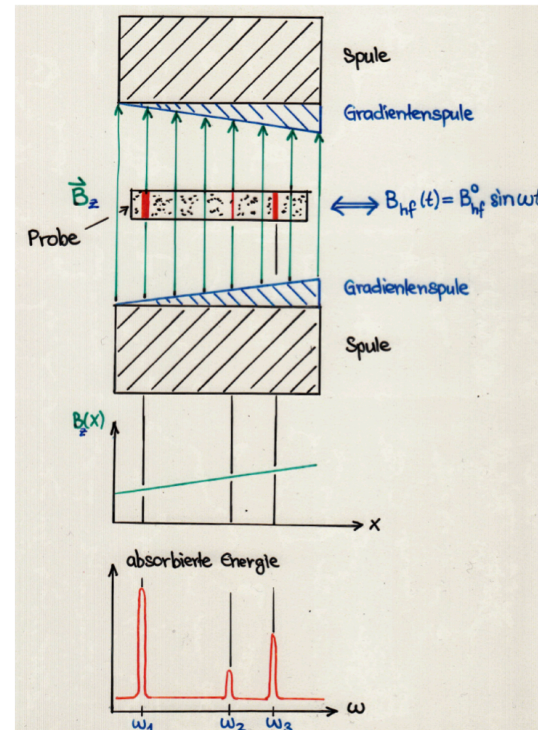 Spule
Gradientenspule
B⃗z
B_hf(t) = B°_hf sin ωt
Probe
Gradientenspule
Spule
Bz(x)
x
absorbierte Energie
ω
ω1 ω2 ω3